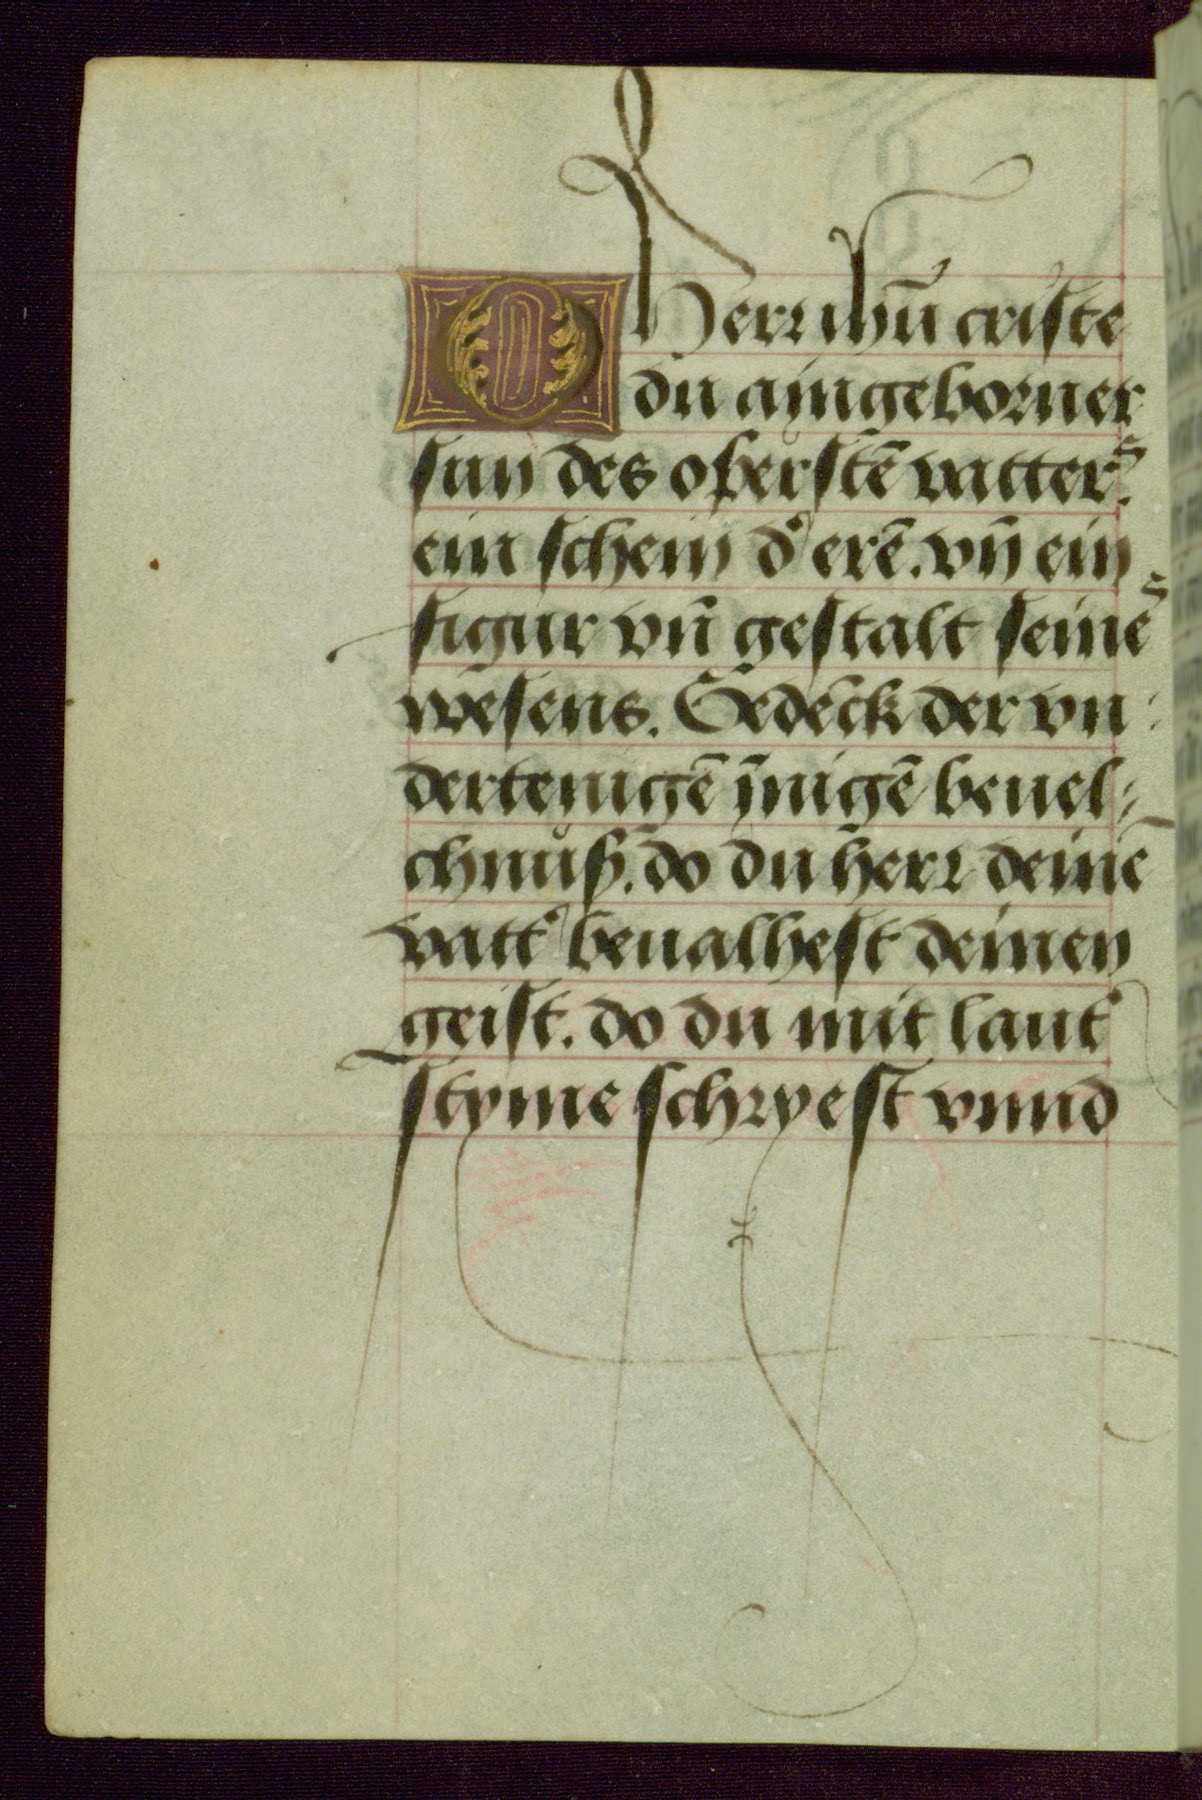 O Herr ihū criste
du aingeborner
sun des obersten̄ vatters.
ein schein d' erē. vn̄ ein
figur vn̄ gestalt seines
wesens. Gedēck der vn
dertenigē ynnigē beuel-
chnuß. do du herr deinē
vatt' beualhest deinen
geist. do du mit laut'
styme schryest vnnd